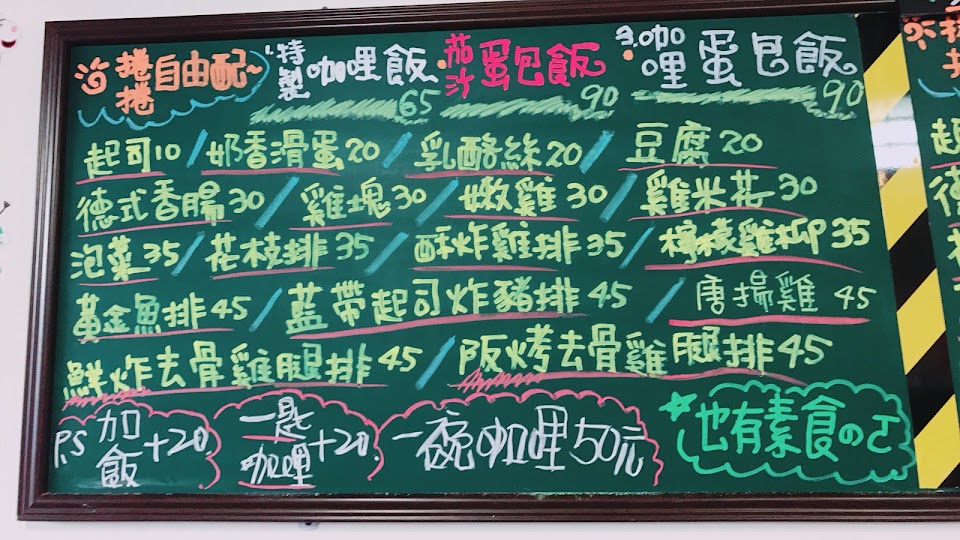 捲捲自由配~
特製咖哩飯65
茄汁蛋包飯90
咖哩蛋包飯90
起司10/奶香滑蛋20/乳酪絲20/豆腐20
德式香腸30/雞塊30/嫩雞30/雞米花30
泡菜35/花枝排35/酥炸雞排35/檸檬雞柳35
黃金魚排45/藍帶起司炸豬排45/唐揚雞45
鮮炸去骨雞腿排45/阪烤去骨雞腿排45
P.S加飯+20.
一匙咖哩+20.
一碗咖哩50元
也有素食のㄛ